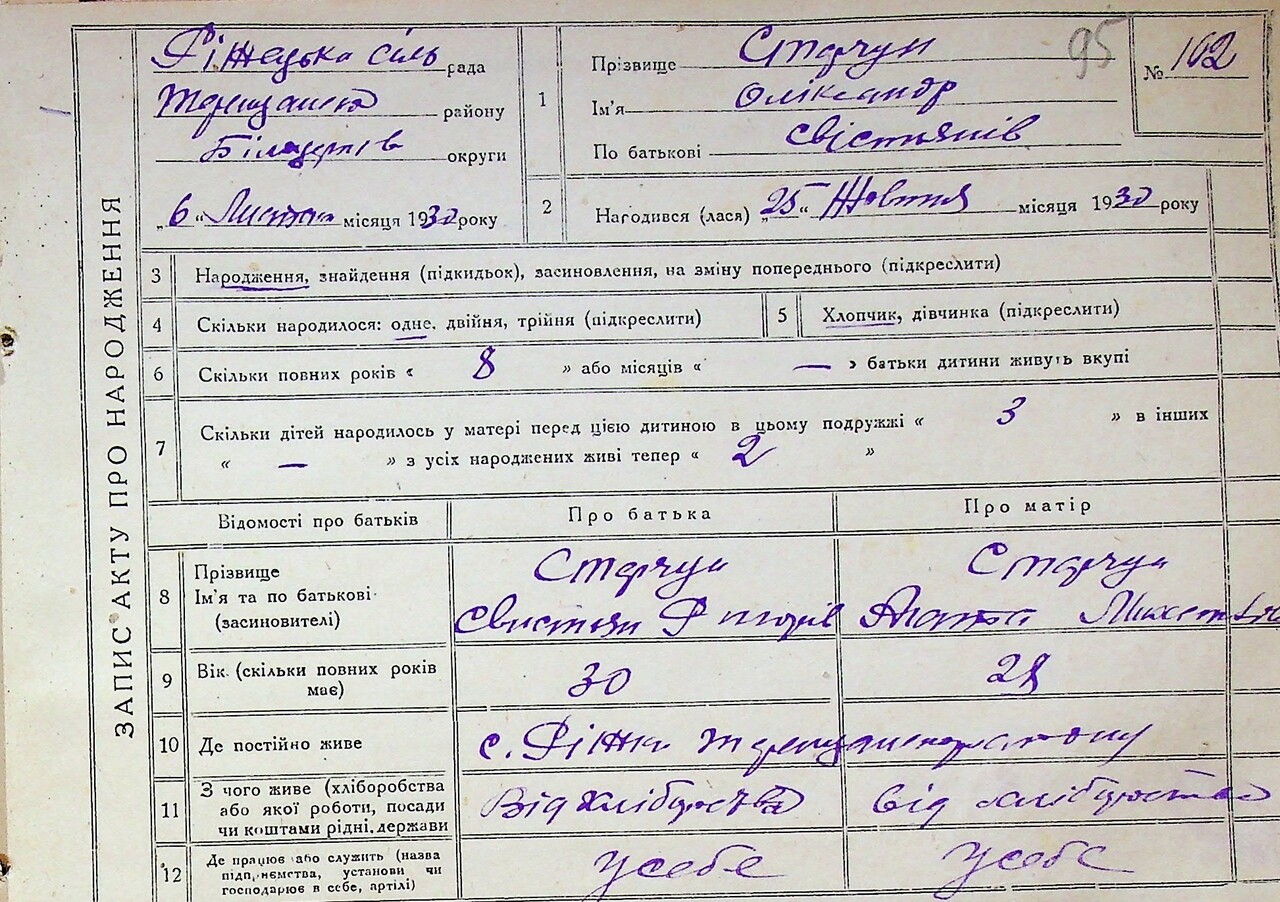 ЗАПИС АКТУ ПРО НАРОДЖЕННЯ
95
№ 102
Ріжецька сіль рада
району
округи
„6“ місяця 1930 року
1
Прізвище Старчун
Ім'я Оліксандр
По батькові Свістянів
2
Народився (лася) „25“ Жовтня місяця 1930 року
3 Народження, знайдення (підкидьок), засиновлення, на зміну попереднього (підкреслити)
4 Скільки народилося: одне, двійня, трійня (підкреслити)
5 Хлопчик, дівчинка (підкреслити)
6 Скільки повних років « 8 » або місяців « — » батьки дитини живуть вкупі
7 Скільки дітей народилось у матері перед цією дитиною в цьому подружжі « 3 » в інших
« — » з усіх народжених живі тепер « 2 »
Відомості про батьків Про батька Про матір
8 Прізвище
Ім'я та по батькові
(засиновителі)
Старчун
Свистян
Старчун
9 Вік (скільки повних років
має)
30
28
10 Де постійно живе
с. Ріжки
11 З чого живе (хліборобства
або якої роботи, посади
чи коштами рідні, держави
Від
від
12 Де працює або служить (назва
підприємства, установи чи
господарює в себе, артілі)
у себе
у себе